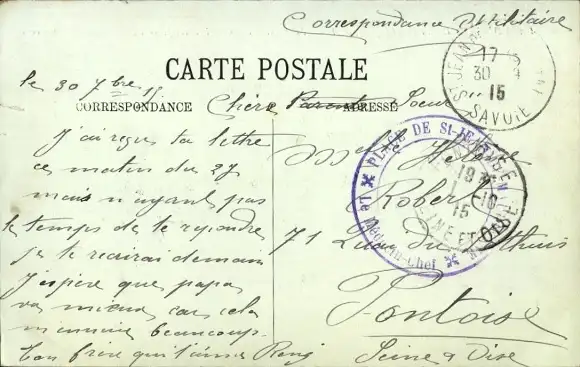 Correspondance Militaire
CARTE POSTALE
le 30 7bre 15
CORRESPONDANCE
ADRESSE
Chère Parente Soeur
J'ai reçu ta lettre
ce matin du 27
mais n'ayant pas
le temps de te repondre
je te recrirai demain
J'espère que papa
va mieux car cela
m'ennuie beaucoup.
Ton frère qui t'aime René
Mlle Hélène
Robert
71 Quai du
Pontoise
Seine & Oise
ST JEAN DE
17
30 - 9
15
SAVOIE
PLACE DE St-JEAN
Le Médecin-Chef
18
1 - 10
15
SEINE ET OISE